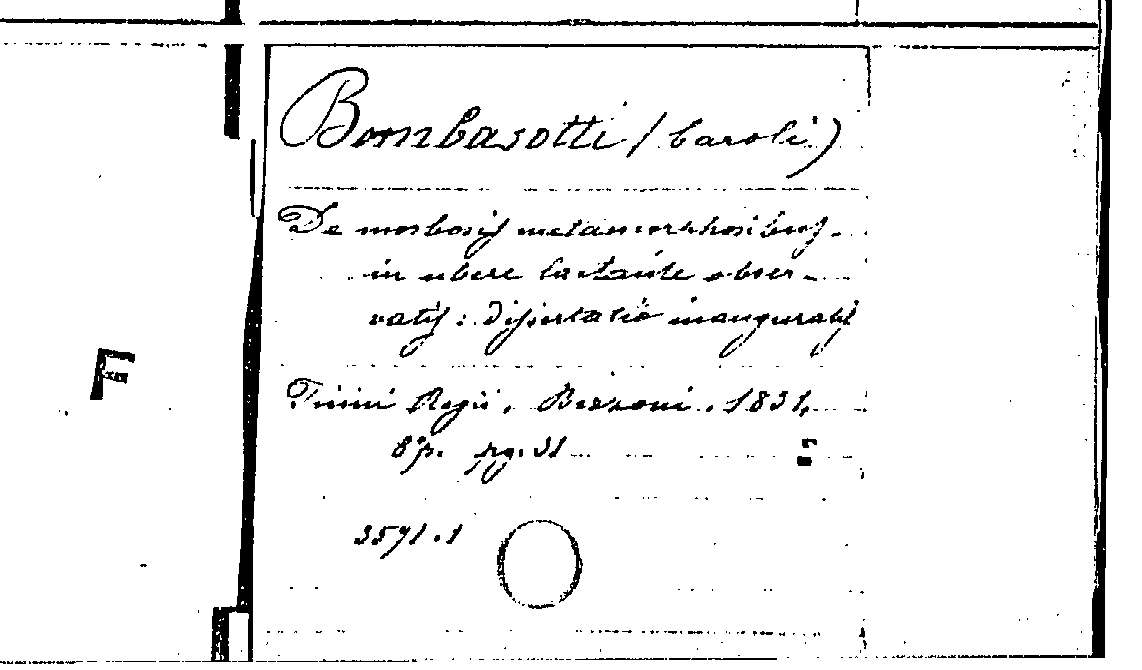 Bombasotti (Caroli)
De morbosis metamorphosibus
in ubere lactante obser-
vatis: dissertatio inauguralis
Ticini Regii, Bizzoni, 1831,
8°p. pg. 31
3571.1
F